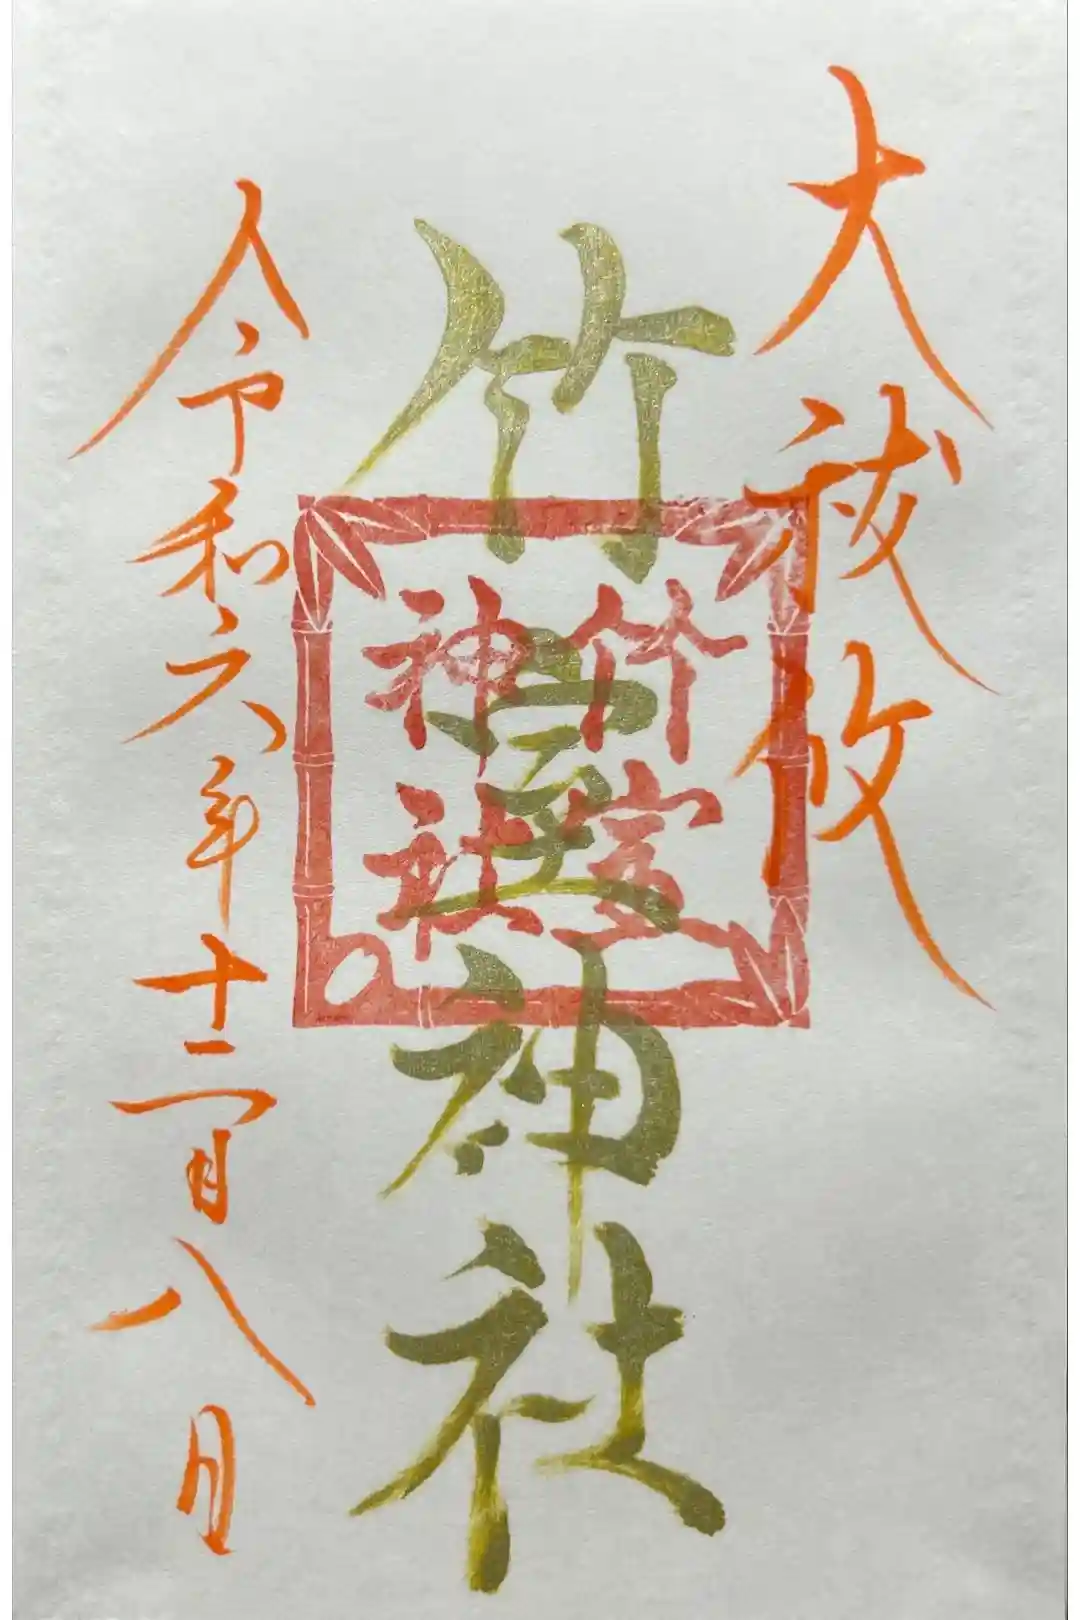 大祓攸
竹室神社
竹室
神社
令和六年十二月八日